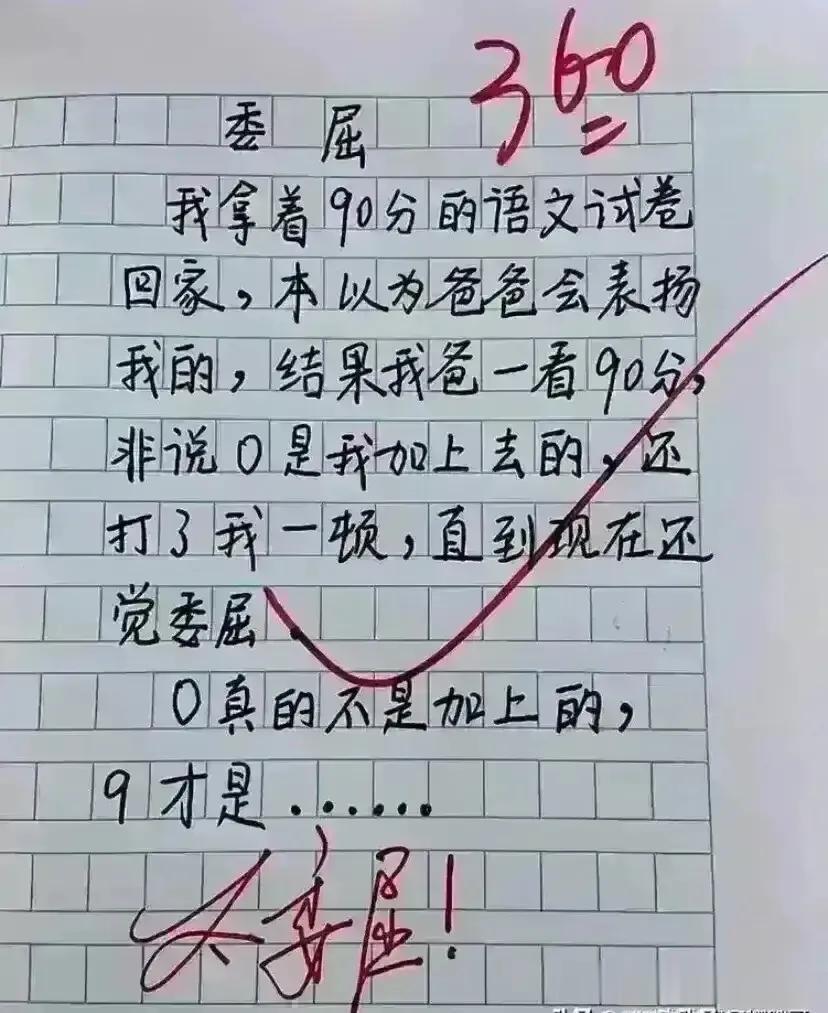 360
委屈
我拿着90分的语文试卷
回家,本以为爸爸会表扬
我的,结果我爸一看90分,
非说0是我加上去的,还
打了我一顿,直到现在还
觉委屈.
0真的不是加上的,
9才是......
太委屈!